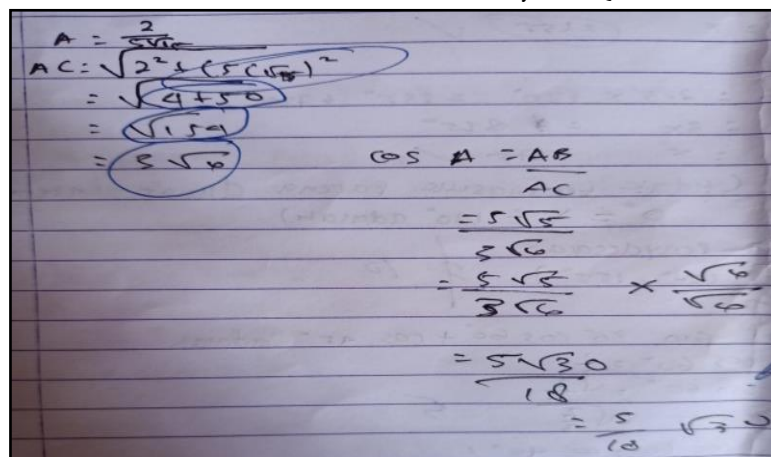 A = 2 / 5√15
AC = √2² + (5(√15)²
= √4 + 50
= √154
= 3√6
cos A = AB / AC
= 5√5 / 3√6
= 5√5 / 3√6 × √6 / √6
= 5√30 / 18
= 5 / 18 √30